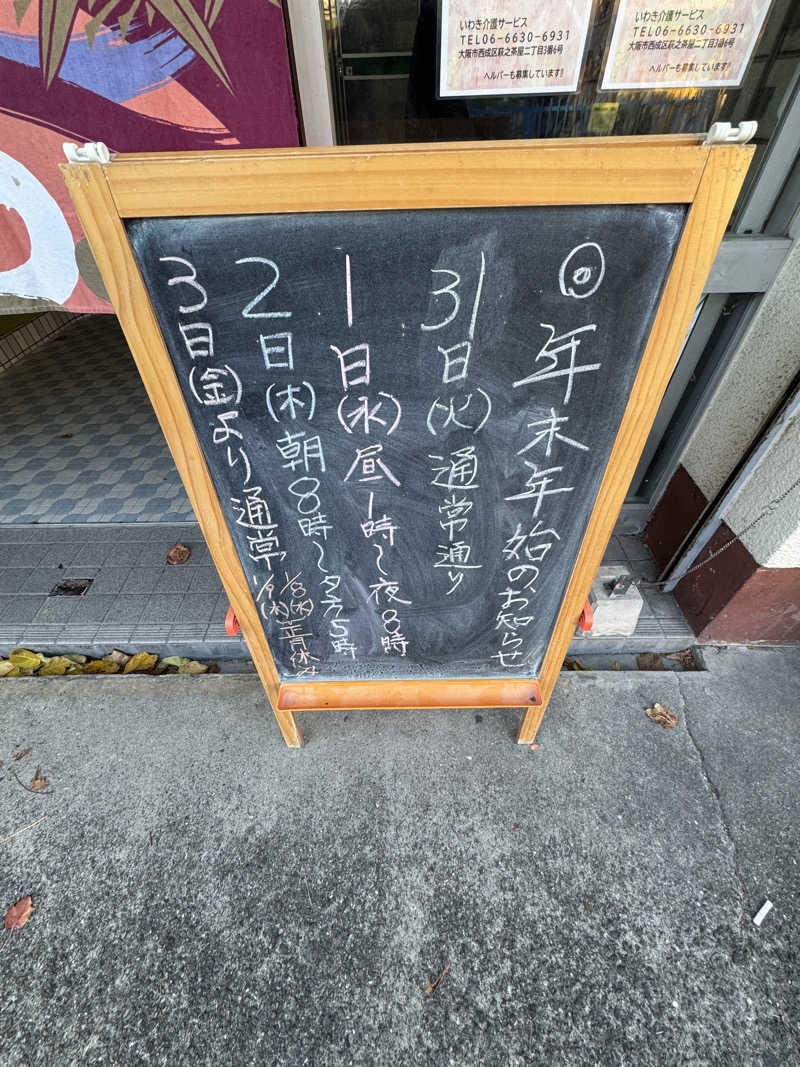 いわき介護サービス
TEL06-6630-6931
大阪市西成区萩之茶屋二丁目3番6号
ヘルパーも募集しています!!
いわき介護サービス
TEL06-6630-6931
大阪市西成区萩之茶屋二丁目3番6号
ヘルパーも募集しています!!
◎年末年始のお知らせ
31日(火)通常通り
1日(水)昼1時〜夜8時
2日(木)朝8時〜夕方5時
3日(金)より通常
1/8(水)
1/9(木)
正月休み